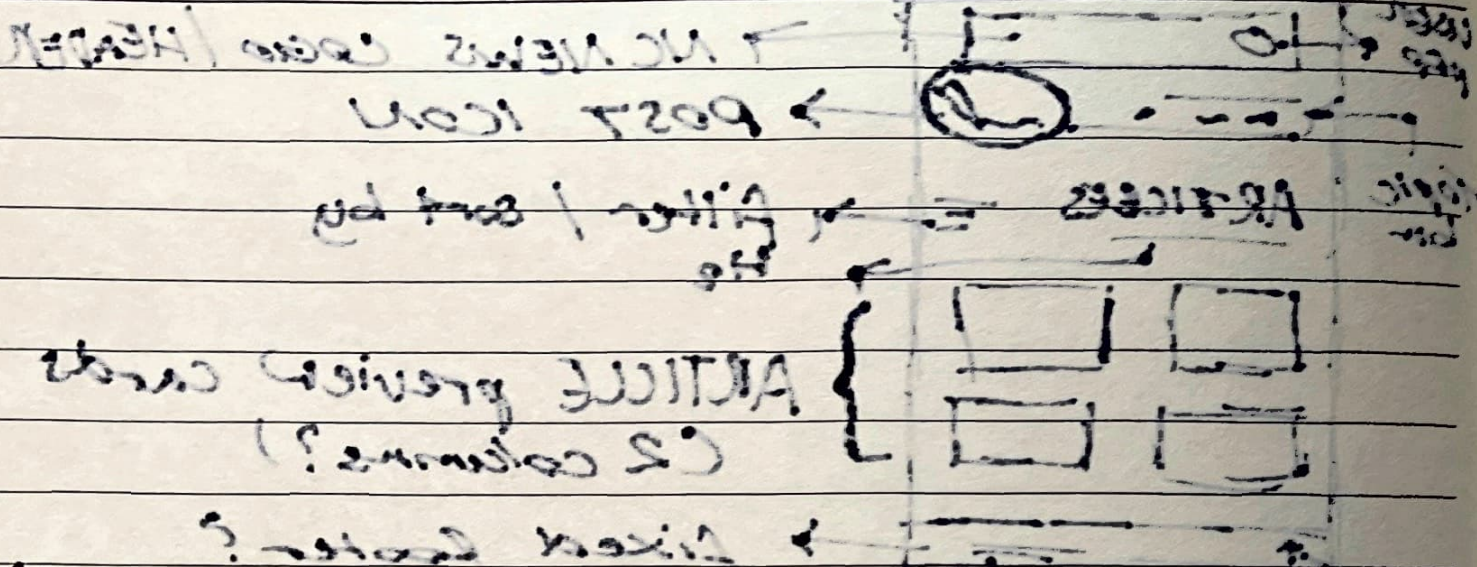 NC NEWS LOGO / HEADER
POST ICON
ARTICLES
filter / sort by
ARTICLE preview cards
(2 columns?)
fixed footer?